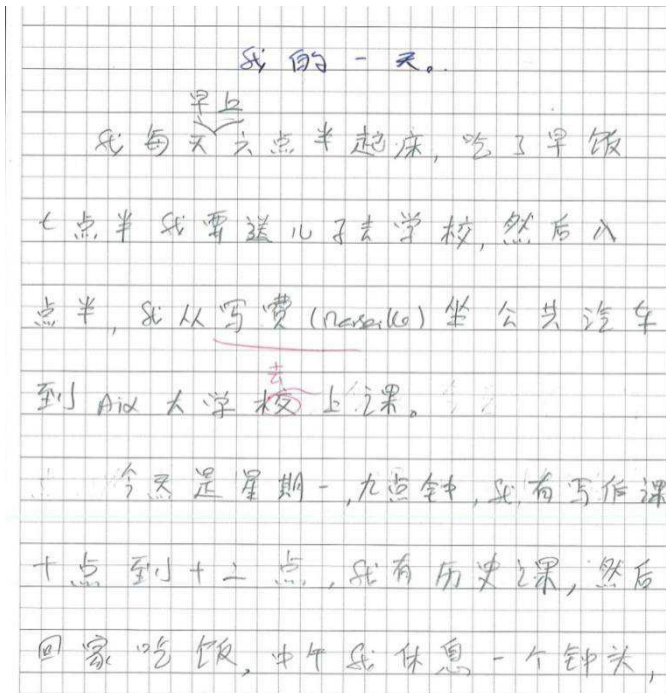 我的一天。
早上
我每天六点半起床,吃了早饭
七点半我要送儿子去学校,然后八
点半,我从写费(Marseille)坐公共汽车
去
到Aix大学校上课。
今天是星期一,九点钟,我有写作课
十点到十二点,我有历史课,然后
回家吃饭,中午我休息一个钟头,